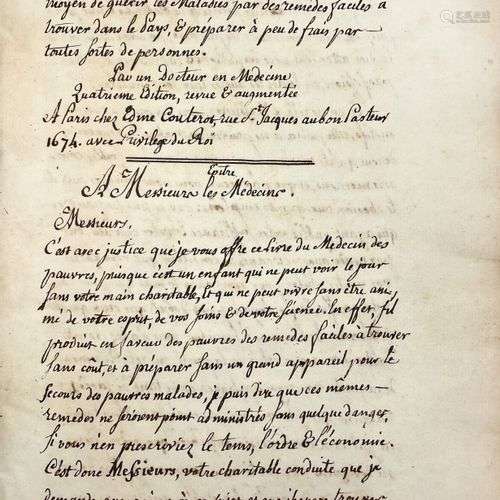 moyen de guérir les Maladies par des remedes faciles à
trouver dans le Pays, & préparer à peu de frais par
toutes sortes de personnes.
Par un Docteur en Medecine
Quatrieme Edition, revue & augmentée
A Paris chez Edme Couterot, rue St Jacques au bon Pasteur
1674. avec Privilege du Roi
Epitre
A Messieurs les Médecins.
Messieurs.
C'est avec justice que je vous offre ce Livre du Medecin des
pauvres, puisque c'est un enfant qui ne peut voir le jour
sans votre main charitable, et qui ne peut vivre sans être ani,
mé de votre esprit, de vos soins & de votre science. En effet, s'il
produit en faveur des pauvres des remedes faciles à trouver
sans coût et à préparer sans un grand appareil pour le
secours des pauvres malades, je puis dire que ces mêmes
remedes ne seroient point administrés sans quelque danger,
si vous n'en prescriviez le tems, l'ordre & l'économie.
C'est donc Messieurs, votre charitable conduite que je